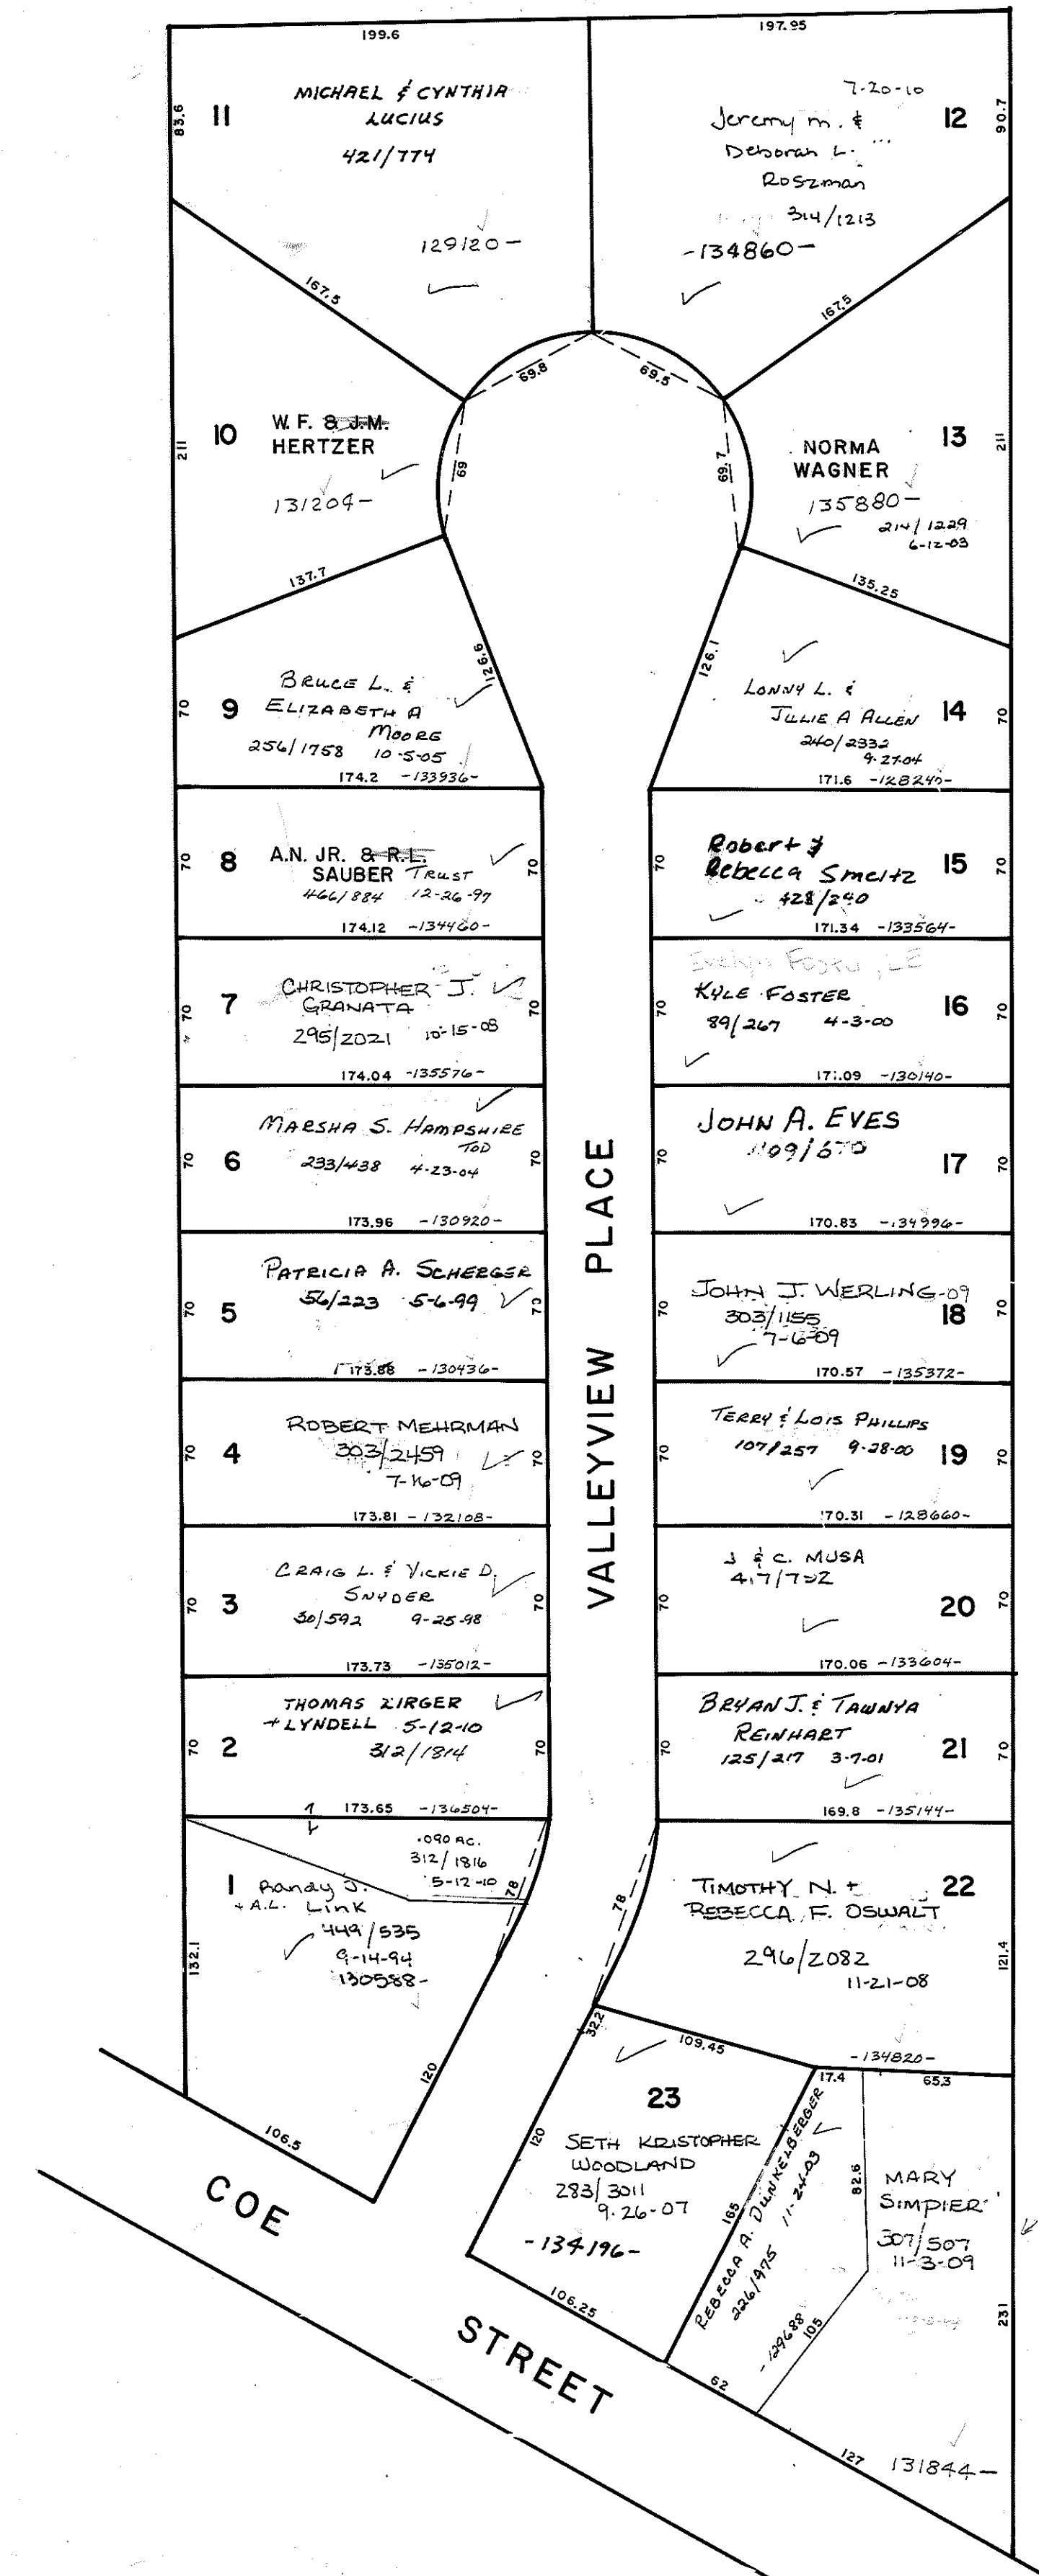 199.6
197.95
83.6
11
MICHAEL & CYNTHIA
LUCIUS
421/774
129120-
7-20-10
Jeremy M. &
Deborah L.
Roszman
314/1213
-134860-
12
90.7
167.5
167.5
69.8
69.5
211
10
W. F. & J.M.
HERTZER
131204-
69
69.7
NORMA
WAGNER
135880-
214/1229
6-12-03
13
211
137.7
135.25
70
9
BRUCE L. &
ELIZABETH A
MOORE
256/1758 10-5-05
174.2 -133936-
126.6
126.1
LONNY L. &
JULIE A ALLEN
240/2332
9-27-04
171.6 -128240-
14
70
70
8
A.N. JR. & R.L.
SAUBER TRUST
466/884 12-26-97
174.12 -134460-
70
70
Robert &
Rebecca Smeltz
428/240
171.34 -133564-
15
70
70
7
CHRISTOPHER J.
GRANATA
295/2021 10-15-08
174.04 -135576-
70
70
Evelyn Foster, LE
KYLE FOSTER
89/267 4-3-00
171.09 -130140-
16
70
70
6
MARSHA S. HAMPSHIRE
TOD
233/438 4-23-04
173.96 -130920-
70
70
JOHN A. EVES
170.83 -134996-
17
70
70
5
PATRICIA A. SCHERGER
56/223 5-6-99
173.88 -130436-
70
70
JOHN J. WERLING-09
303/1155
7-6-09
170.57 -135372-
18
70
70
4
ROBERT MEHRMAN
303/2459
7-16-09
173.81 -132108-
70
70
TERRY & LOIS PHILLIPS
107/257 9-28-00
170.31 -128660-
19
70
70
3
CRAIG L. & VICKIE D.
SNYDER
30/592 9-25-98
173.73 -135012-
70
70
J & C. MUSA
170.06 -133604-
20
70
VALLEYVIEW PLACE
70
2
THOMAS ZIRGER
+ LYNDELL 5-12-10
312/1814
173.65 -136504-
70
70
BRYAN J. & TAWNYA
REINHART
125/217 3-7-01
169.8 -135144-
21
70
.090 AC.
312/1816
5-12-10
1
Randy J.
+ A.L. Link
449/535
9-14-94
130588-
132.1
78
120
106.5
78
TIMOTHY N. +
REBECCA F. OSWALT
296/2082
11-21-08
-134820-
22
121.4
32.2
109.45
23
SETH KRISTOPHER
WOODLAND
283/3011
9-26-07
-134196-
120
106.25
17.4
65.3
165
REBECCA A. DUNKELBERGER
226/975 11-24-03
-129688
82.6
105
62
MARY
SIMPIER
307/507
11-3-09
231
127
131844-
COE
STREET